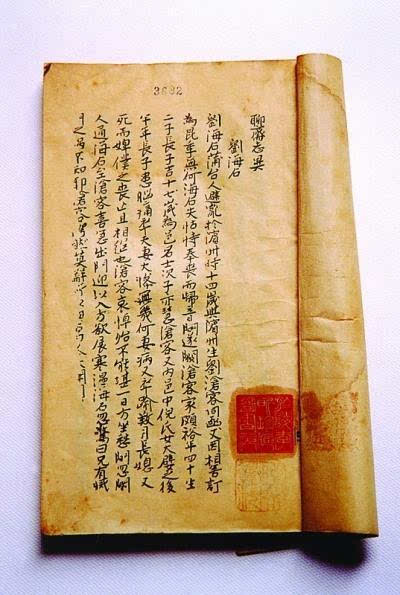 3682
聊齋志異
劉海石
劉海石蒲台人避亂於濱州時十四歲與濱州生劉滄客同函丈因相善訂
為昆季無何海石失怙恃奉喪而歸音問遂闕滄客家頗裕年四十生
二子長子吉十七歲為邑名士次子亦慧滄客又內邑中倪氏女大嬖之後
半年長子患腦痛卒夫妻大慘無幾何妻病又卒踰數月長媳又
死而婢僕之喪亡且相繼也滄客哀悼殆不能堪一日方坐愁間忽閽
人通海石至滄客喜急出門迎以入方欲展寒溫海石忽驚曰兄有滅